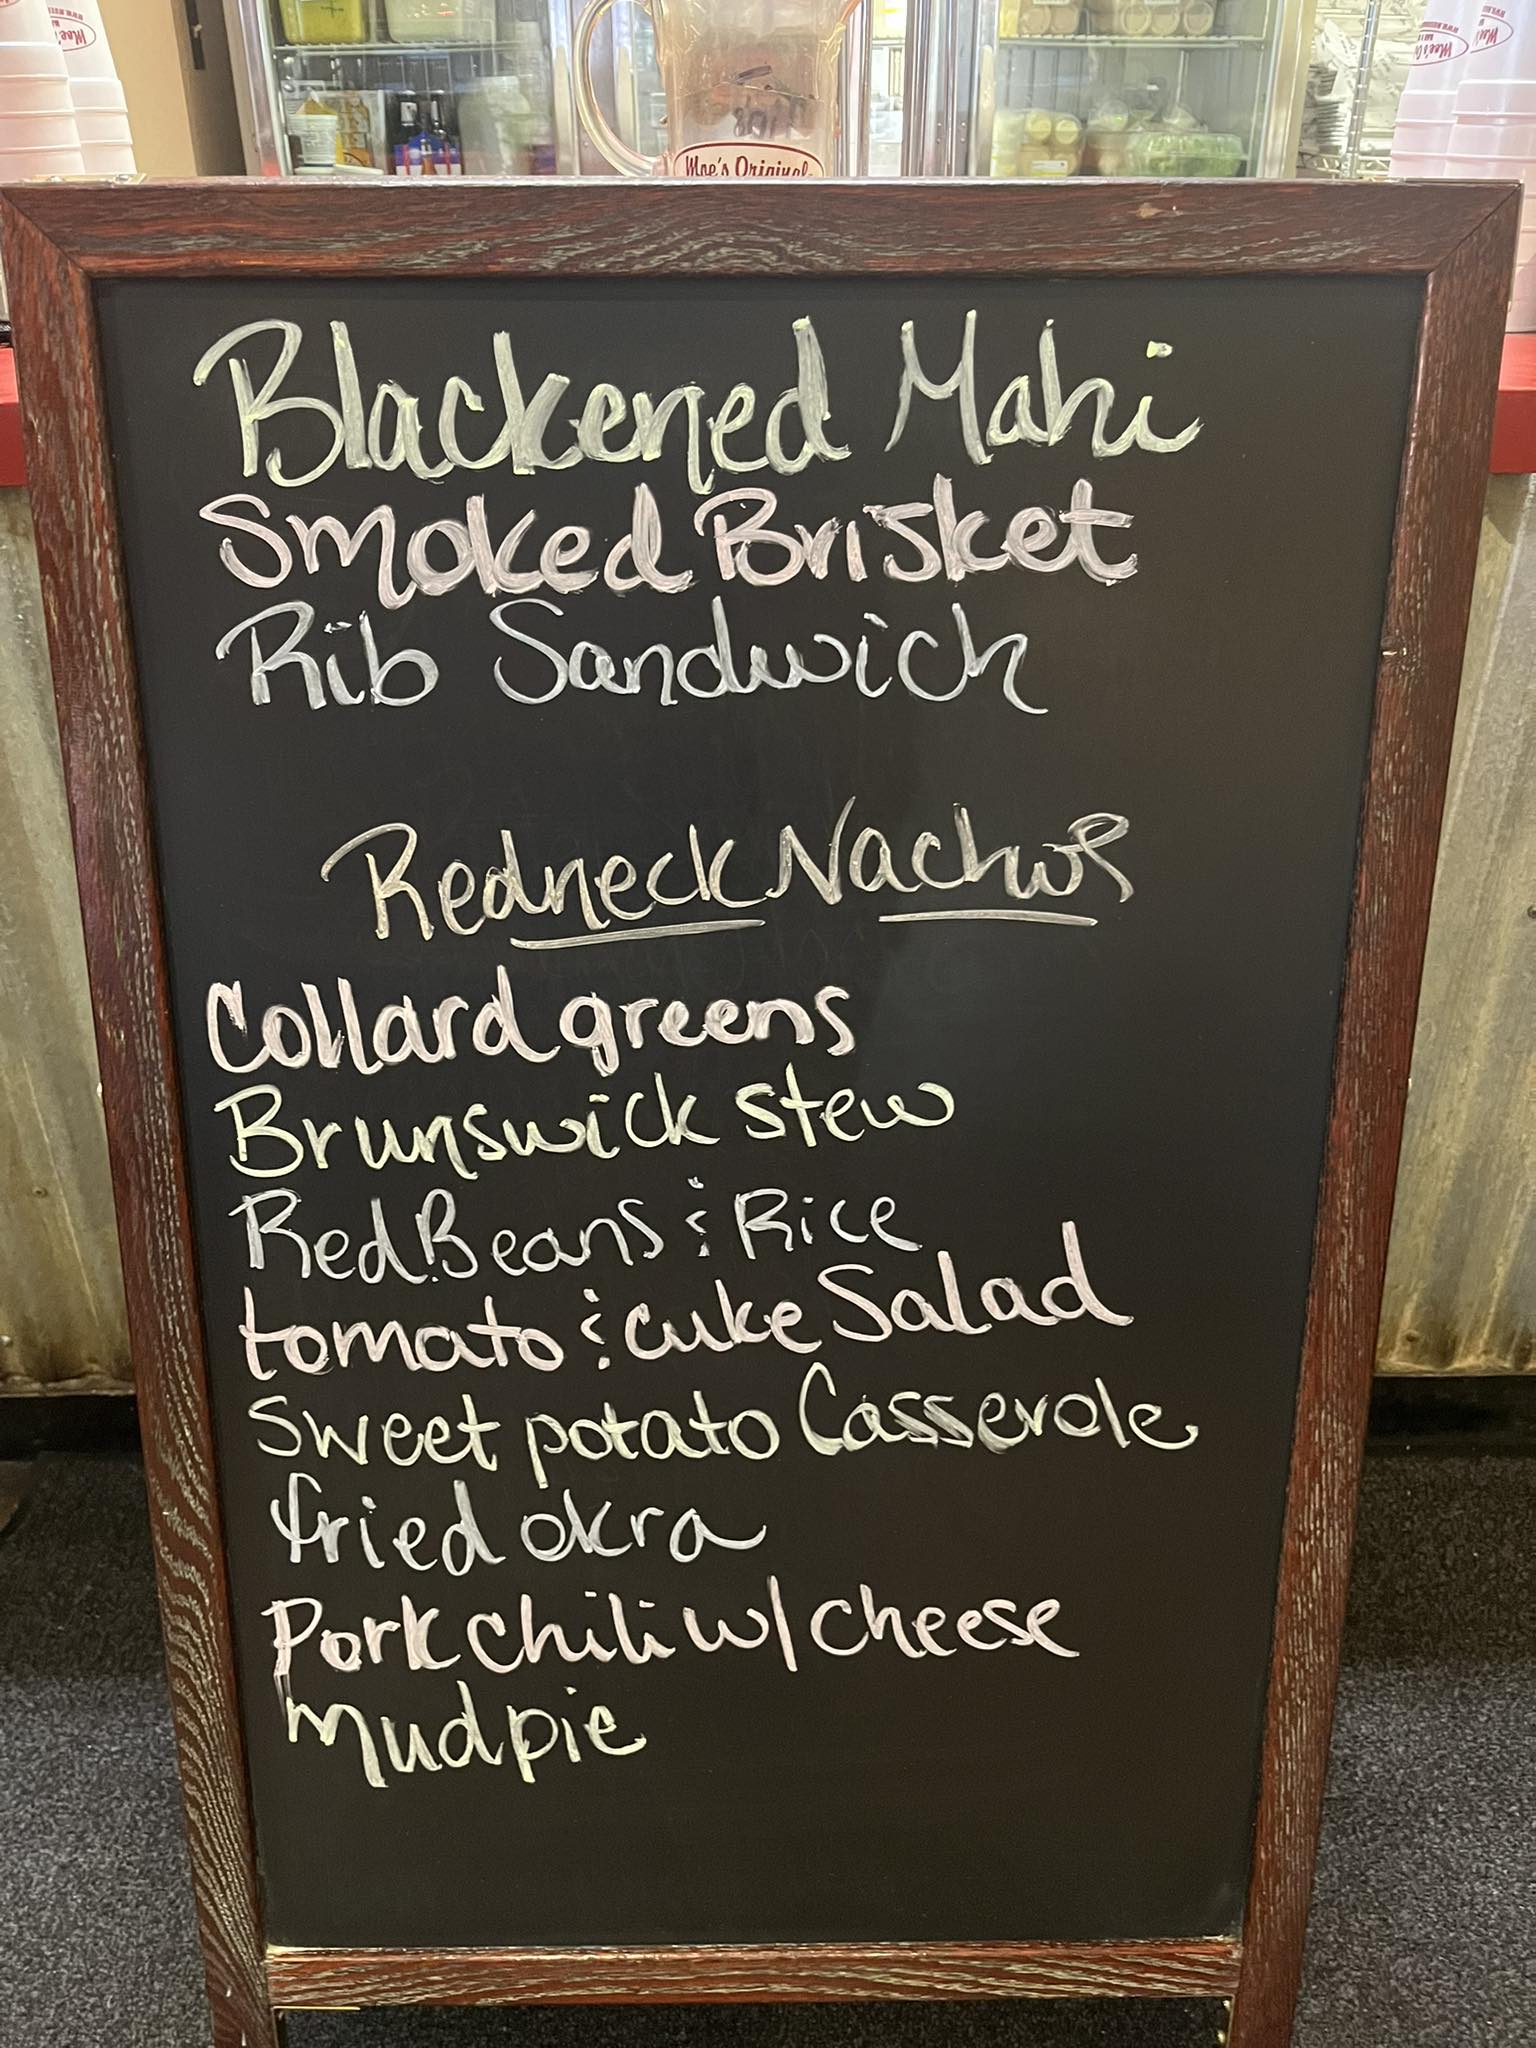 Moe's Original
Blackened Mahi
Smoked Brisket
Rib Sandwich
Redneck Nachos
Collard greens
Brunswick stew
Red Beans & Rice
tomato & cuke Salad
Sweet potato Casserole
fried okra
Pork chili w/ cheese
Mud pie